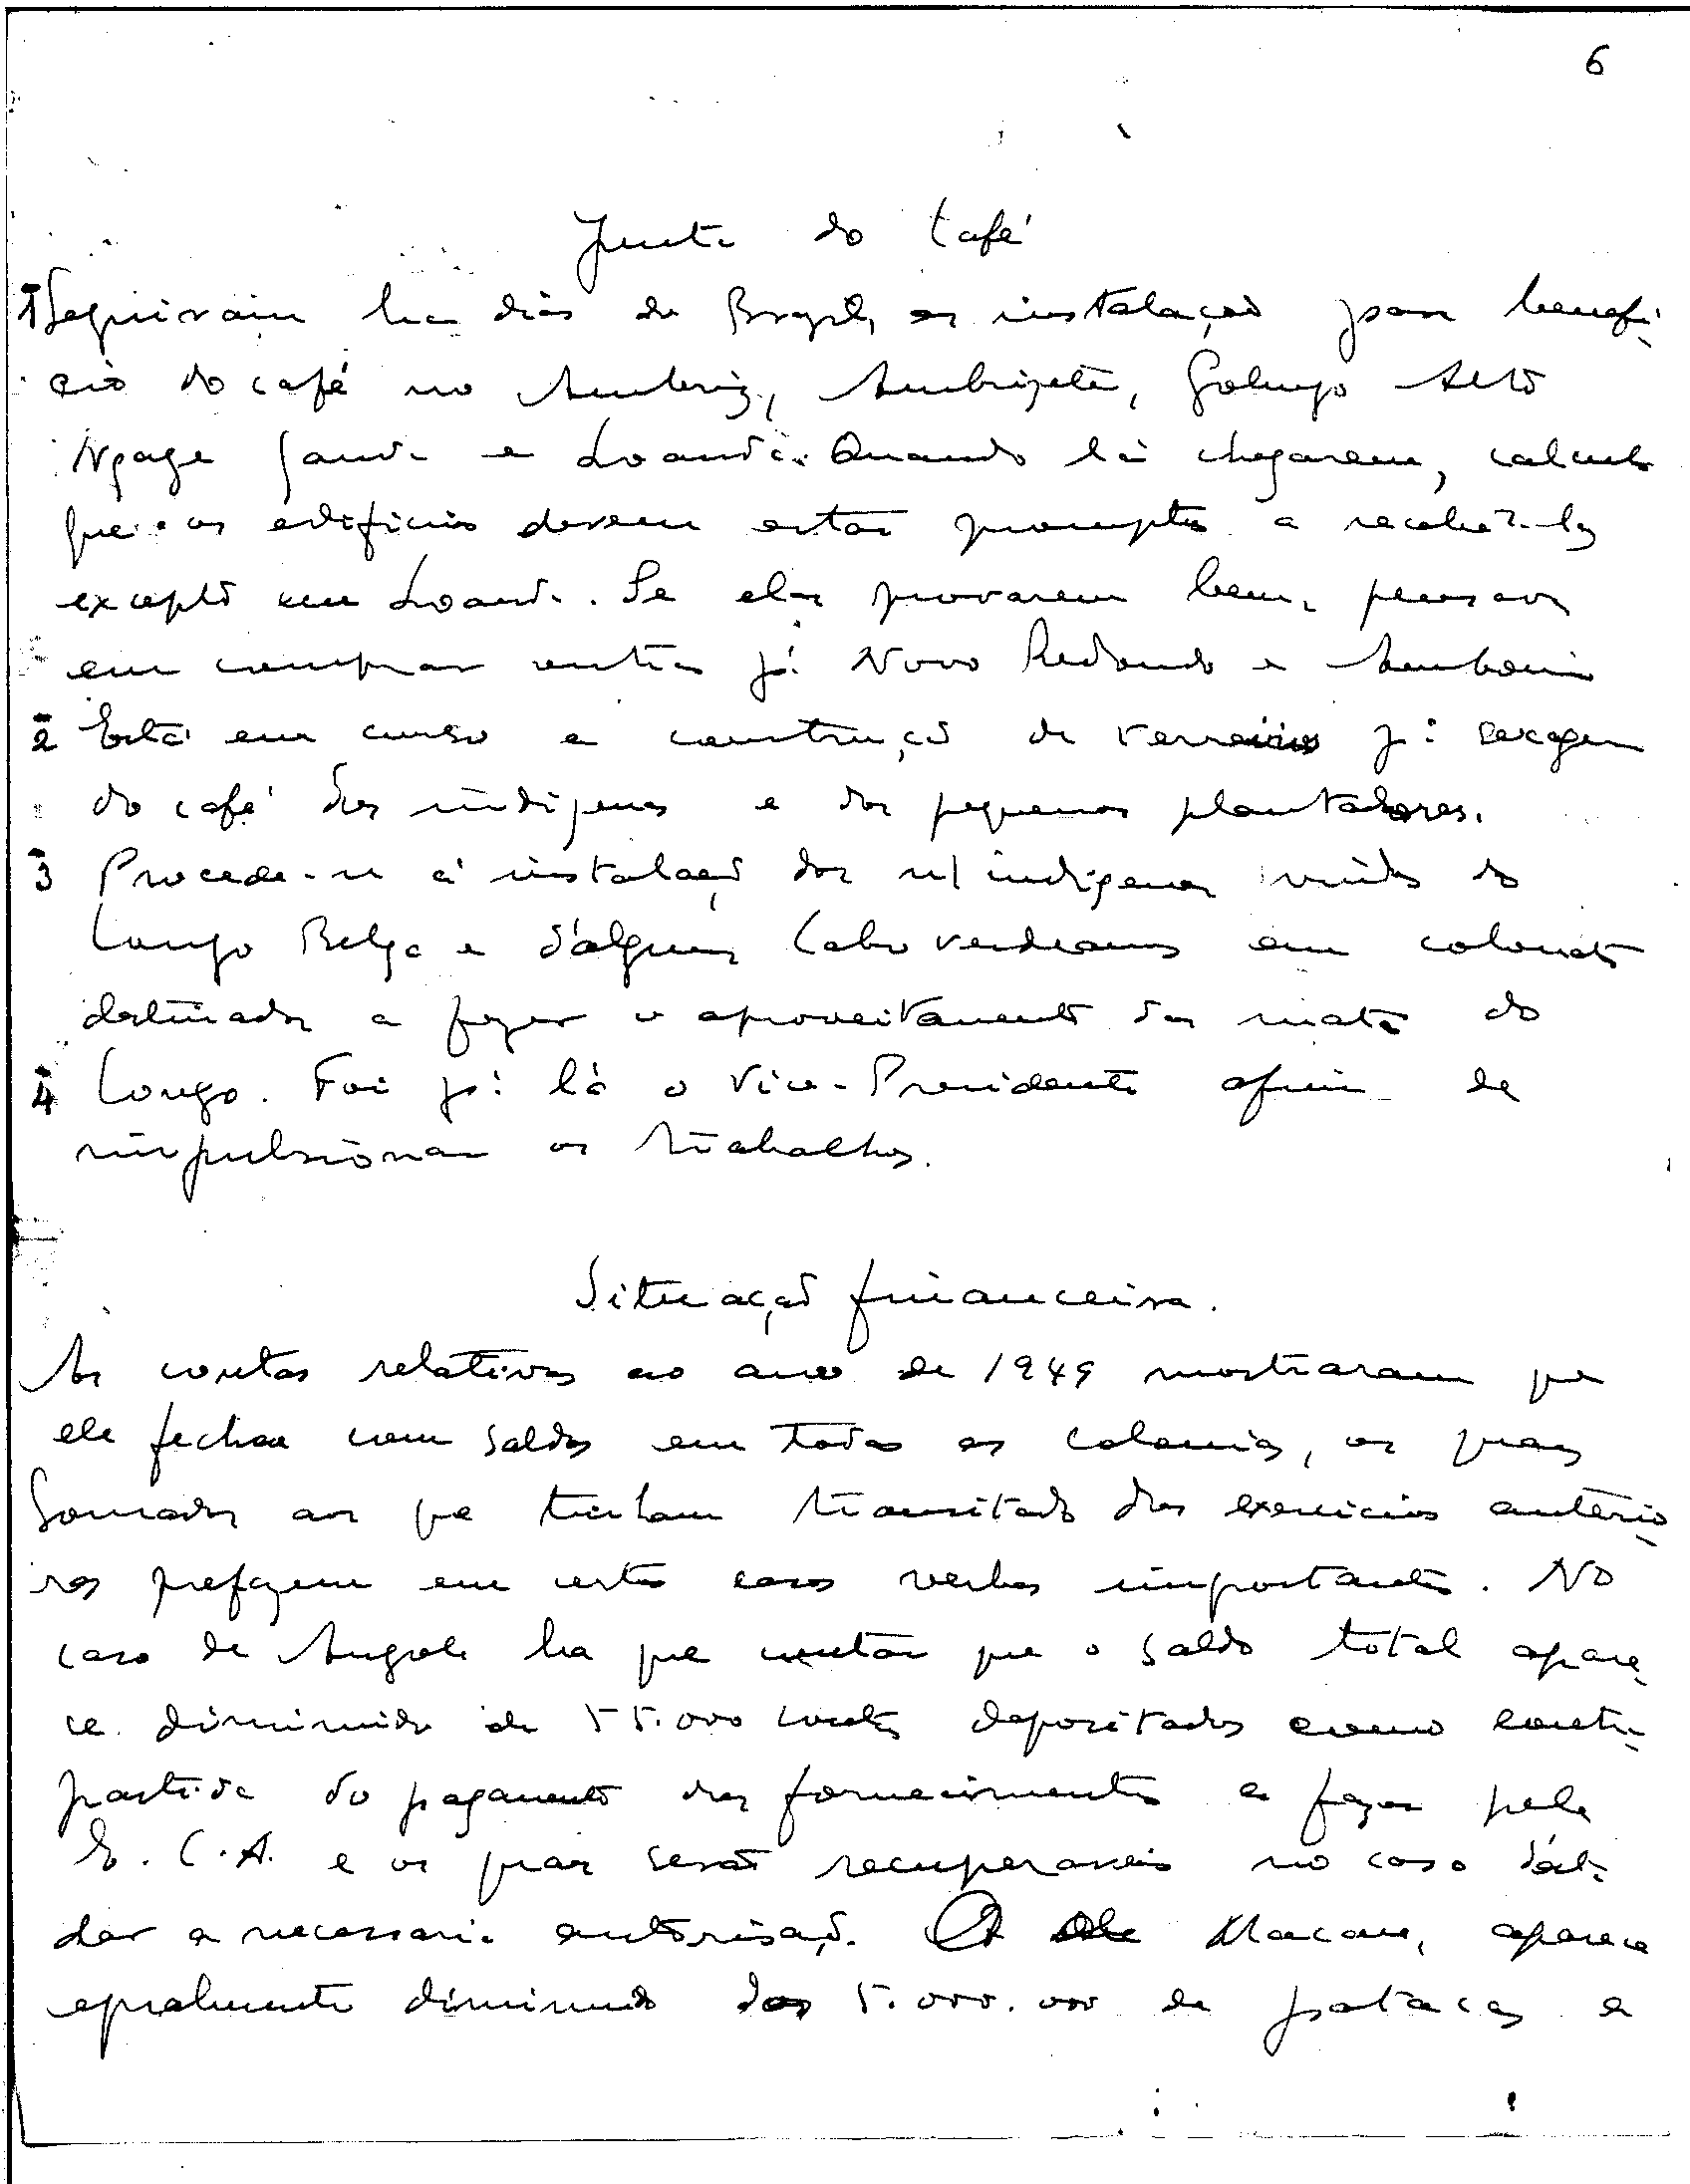 6
Junta do Café
1 Seguiram ha dias do Brazil, as instalações para benefi-
cio do café no Ambriz, Ambrizete, Golungo Alto
Ngage e Loanda. Quando lá chegarem, calculo
que os edificios devem estar promptos a recebe-las
excepto em Loanda. Se elas provarem bem, pensar
em comprar outras pª Novo Redondo e Amboim
2 Está em curso a construção de terreiros pª secagem
do café dos indigenas e dos pequenos plantadores.
3 Procede-se á instalação dos n/ indigenas vindos do
Congo Belga e d'alguns Caboverdeanos em colonatos
destinados a fazer o aproveitamento das matas do
4 Congo. Foi já lá o Vice-Presidente afim de
impulsionar os trabalhos.
Situação financeira.
As contas relativas ao ano de 1949 mostraram que
ele fechou com saldos em todas as colonias, os quaes
somados aos que tinham transitado dos exercicios anterio-
res prefazem em certos casos verbas importantes. No
caso de Angola ha que contar que o saldo total apare-
ce diminuido de 55.000 contos depositados como contra-
partida do pagamento dos fornecimentos a fazer pela
E.C.A. e os quaes serão recuperaveis no caso d'ela
dar a necessaria autorisação. O de Macau, aparece
egualmente diminuido dos 5.000.000 de patacas e